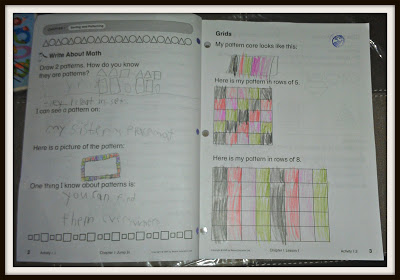 Sorting and Patterning
Write About Math
Draw 2 patterns. How do you know
they are patterns?
I can see a pattern on:
my sisters
Here is a picture of the pattern:
One thing I know about patterns is:
you can find
them everywhere
2
Grids
My pattern core looks like this:
Here is my pattern in rows of 5.
Here is my pattern in rows of 8.
3